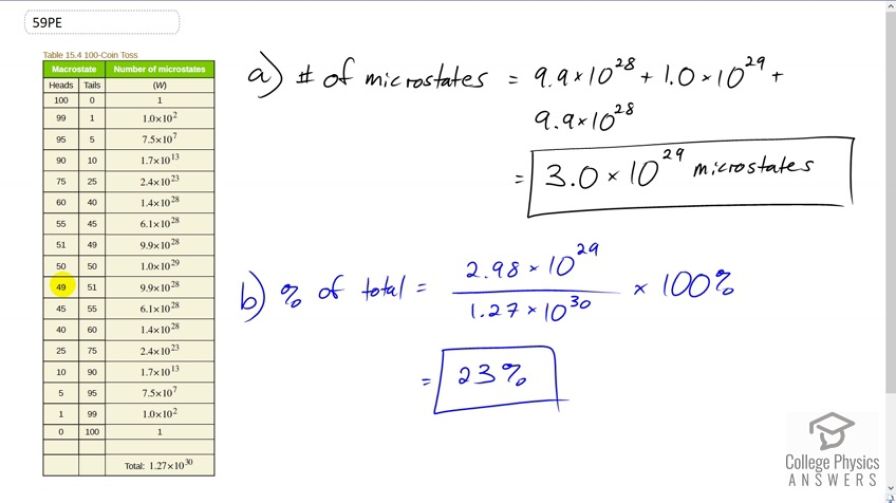 59PE
Table 15.4 100-Coin Toss
Macrostate Number of microstates
Heads Tails (W)
100 0 1
99 1 1.0×10²
95 5 7.5×10⁷
90 10 1.7×10¹³
75 25 2.4×10²³
60 40 1.4×10²⁸
55 45 6.1×10²⁸
51 49 9.9×10²⁸
50 50 1.0×10²⁹
49 51 9.9×10²⁸
45 55 6.1×10²⁸
40 60 1.4×10²⁸
25 75 2.4×10²³
10 90 1.7×10¹³
5 95 7.5×10⁷
1 99 1.0×10²
0 100 1
Total: 1.27×10³⁰
a) # of microstates = 9.9×10²⁸ + 1.0×10²⁹ +
9.9×10²⁸
= 3.0 × 10²⁹ microstates
b) % of total = 2.98 × 10²⁹ / 1.27 × 10³⁰ × 100%
= 23%
College Physics
ANSWERS